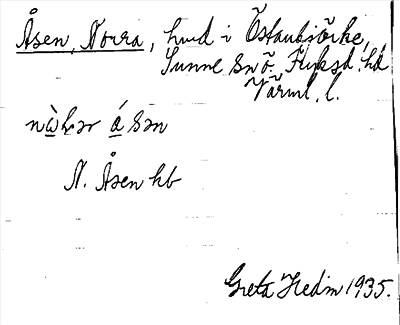 Åsen, Norra, hmd i Östanbjörke,
Sunne snö. Fryksd. hd
Värml. l.
nẁhər á sən
N. Åsen hb
Greta Hedin 1935.